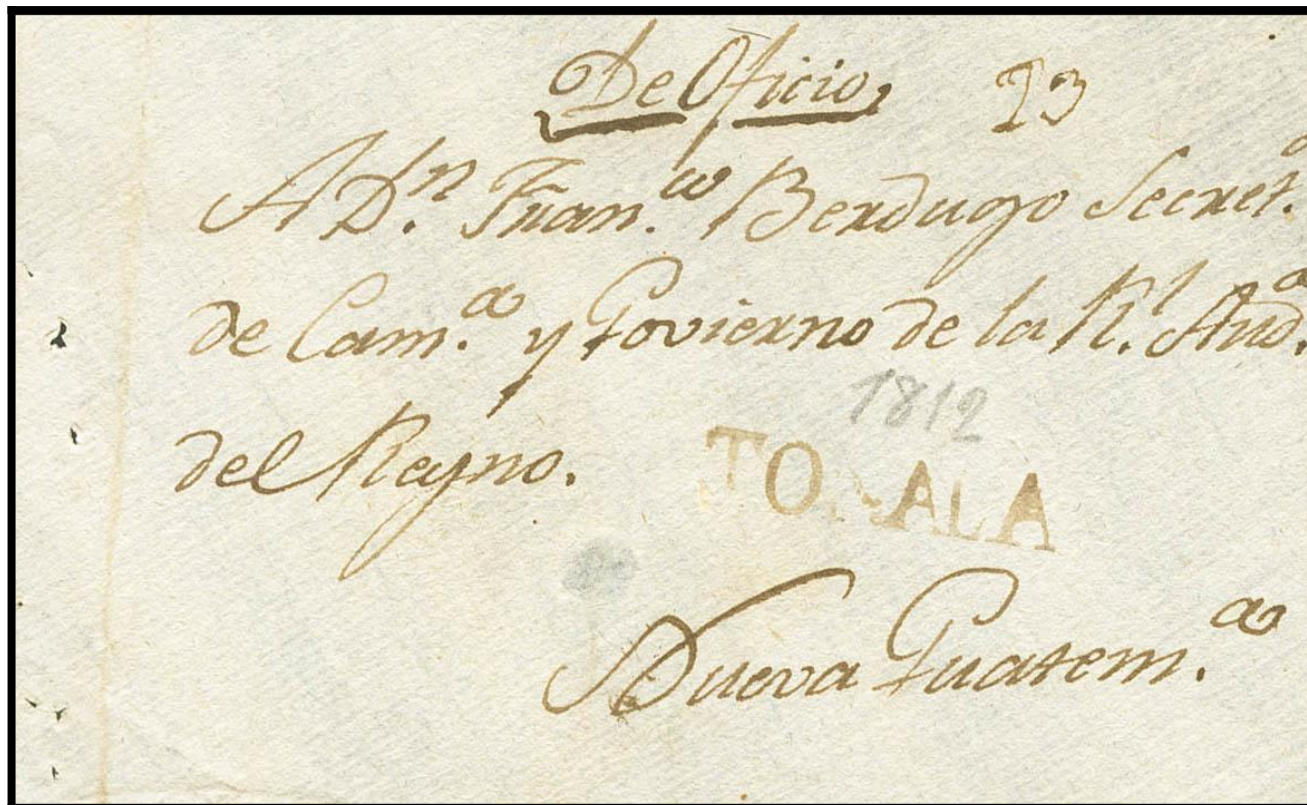 De Oficio 23
A D.n Fran.co Berdugo Secret.o
de Cam.a y Govierno de la R.l Aud.a
del Reyno.
1812
TONALA
Nueva Guatem.a